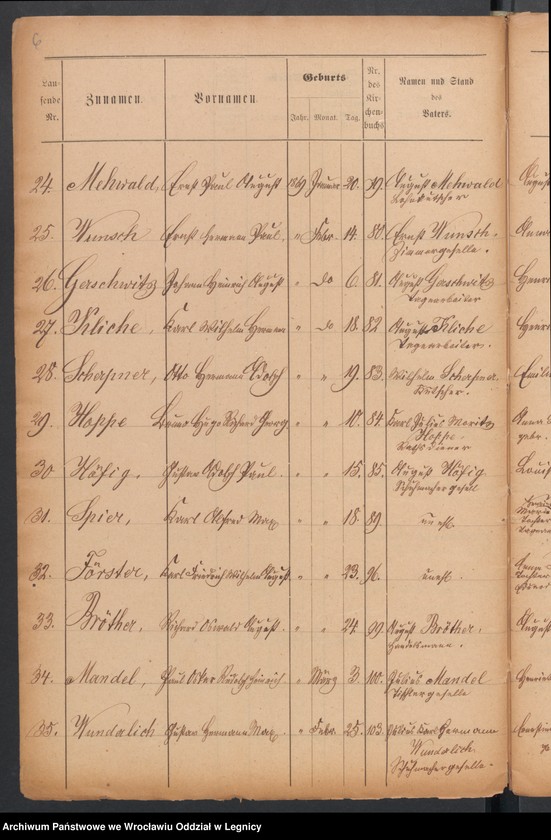 6
Lau-
fende
Nr.
Zunamen.
Vornamen.
Geburts
Jahr. Monat. Tag.
Nr.
des
Kir-
chen-
buchs
Namen und Stand
des
Vaters.
24. Mehwald, Ernst Paul August 1869 Januar 20. 79. August Mehwald
25. Wunsch Ernst Hermann Paul. " Febr. 14. 80. Ernst Wunsch.
Zimmergeselle.
26. Gerschwitz Johann Heinrich August " do 6. 81. August Gerschwitz
Tagearbeiter
27. Kliche, Karl Wilhelm Hermann " do 18. 82 August Kliche
Tagearbeiter.
28. Schepner, Otto Hermann Adolph " " 19. 83. Wilhelm Schepner,
Kutscher.
29. Hoppe Bruno Hugo Richard Georg " " 10. 84. Karl Julius Moritz
Hoppe.
30 Häsig. Gustav Adolph Paul. " " 15. 85. August Häsig
Schuhmachergesell
31. Spier, Karl Alfred Max " " 18. 89. unehl.
32. Förster, Karl Friedrich Wilhelm August " " 23. 96. unehl.
33. Bröther, Richard Oswald August. " " 24. 99. August Bröther,
Handelsmann.
34. Mandel, Paul Oskar Rudolf Heinrich " März 3. 100. Julius Mandel
Tischlergeselle
35. Wunderlich Gustav Hermann Max. " Febr. 25. 103. Julius Karl Hermann
Wunderlich
Schuhmachergeselle.
Archiwum Państwowe we Wrocławiu Oddział w Legnicy